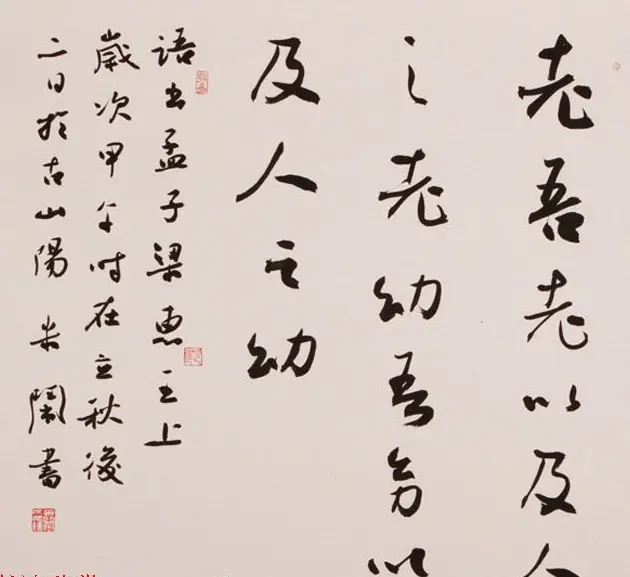 老吾老以及人
之老幼吾幼以
及人之幼
语出孟子梁惠王上
歲次甲午时在立秋後
二日於古山陽書